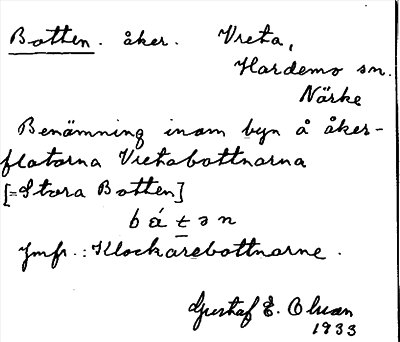 Botten. åker. Vreta,
Hardemo sn.
Närke
Benämning inom byn å åker-
flatorna Vretabottnarna
[=Stora Botten]
bát̠ən
Jmfr.: Klockarebottnarne.
Gustaf E. Olsson
1933